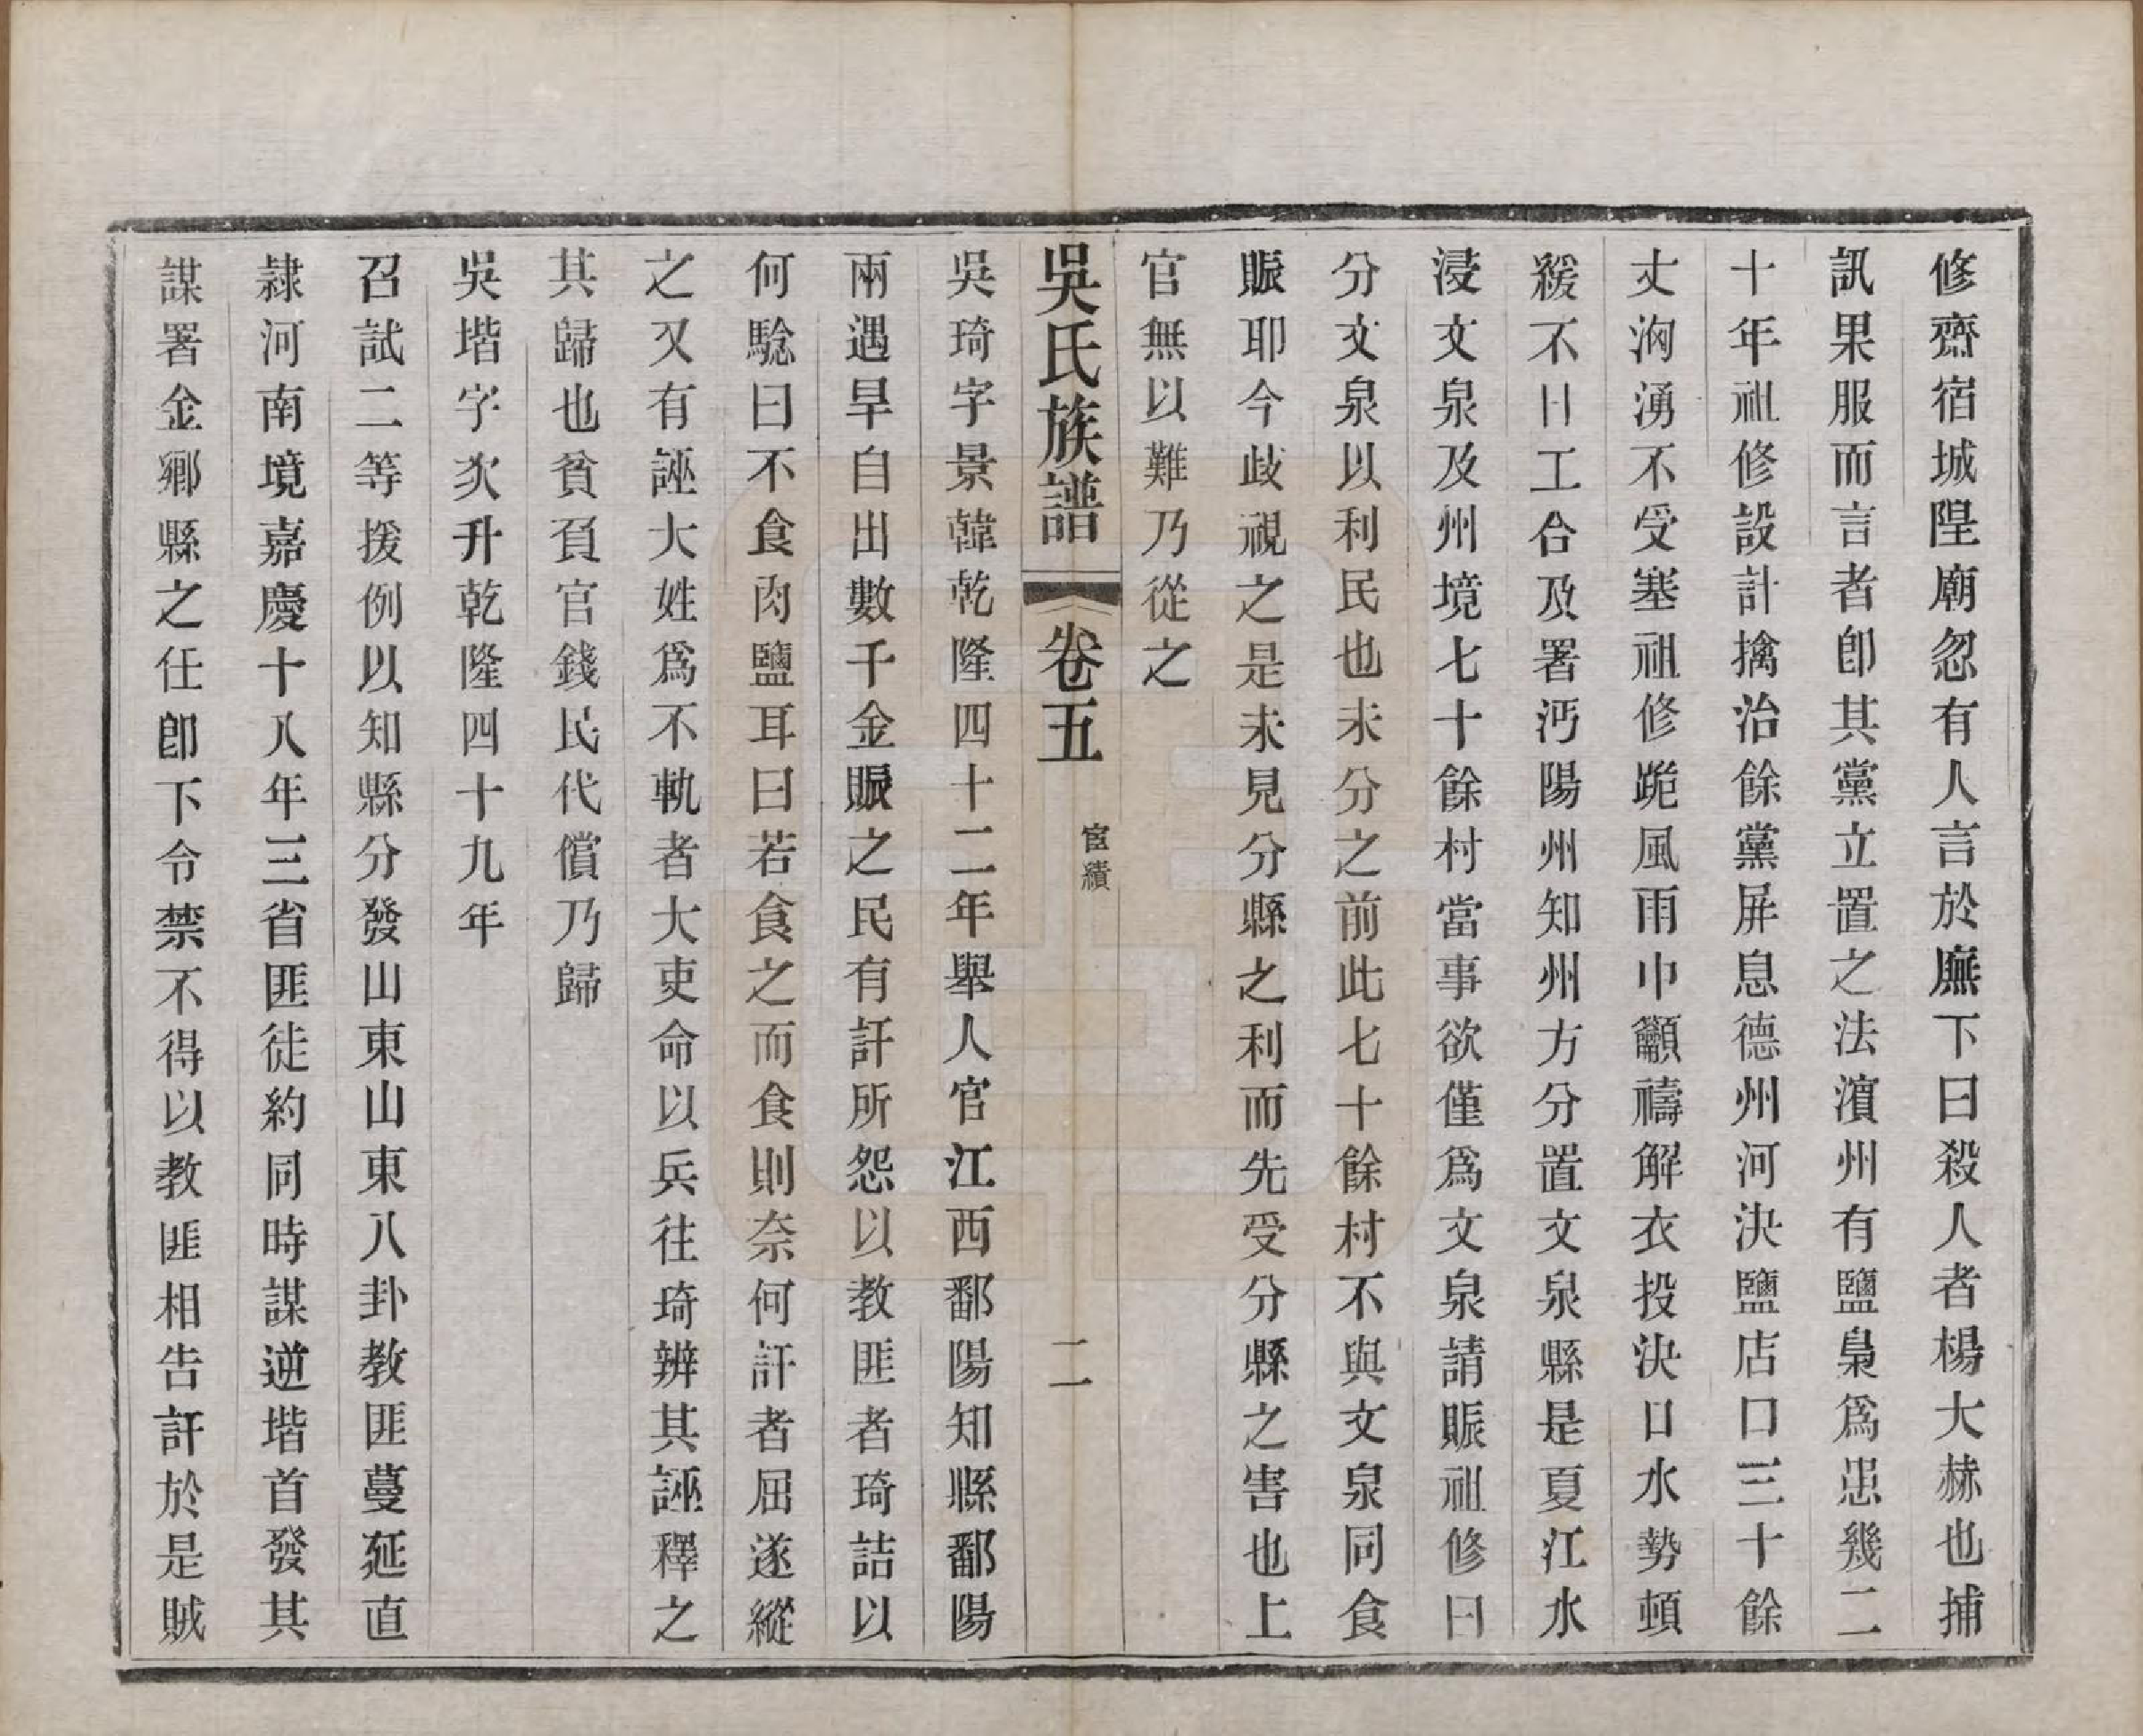 修齋宿城隍廟忽有人言於廡下曰殺人者楊大赫也捕
訊果服而言者卽其黨立置之法濵州有鹽梟爲患幾二
十年祖修設計擒治餘黨屏息德州河決鹽店口三十餘
丈洶湧不受塞祖修跪風雨中籲禱解衣投決口水勢頓
緩不日工合及署沔陽州知州方分置文泉縣是夏江水
浸文泉及州境七十餘村當事欲僅爲文泉請賑祖修曰
分文泉以利民也未分之前此七十餘村不與文泉同食
賑耶今歧視之是未見分縣之利而先受分縣之害也上
官無以難乃從之
吳氏族譜 卷五 宦績 二
吳琦字景韓乾隆四十二年舉人官江西鄱陽知縣鄱陽
兩遇旱自出數千金賑之民有訐所怨以教匪者琦詰以
何騐曰不食肉鹽耳曰若食之而食則奈何訐者屈遂縱
之又有誣大姓爲不軌者大吏命以兵往琦辨其誣釋之
其歸也貧負官錢民代償乃歸
吳堦字次升乾隆四十九年
召試二等援例以知縣分發山東山東八卦教匪蔓延直
隷河南境嘉慶十八年三省匪徒約同時謀逆堦首發其
謀署金鄉縣之任卽下令禁不得以教匪相告訐於是賊